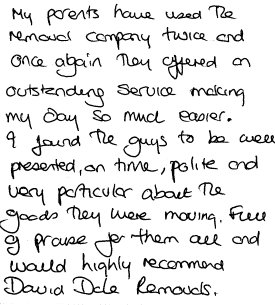 My parents have used The
removals company twice and
once again They offered an
outstanding service making
my day so much easier.
I found The guys to be well
presented, on time, polite and
very particular about The
goods They were moving. Full
of praise for them all and
would highly recommend
David Dale Removals.